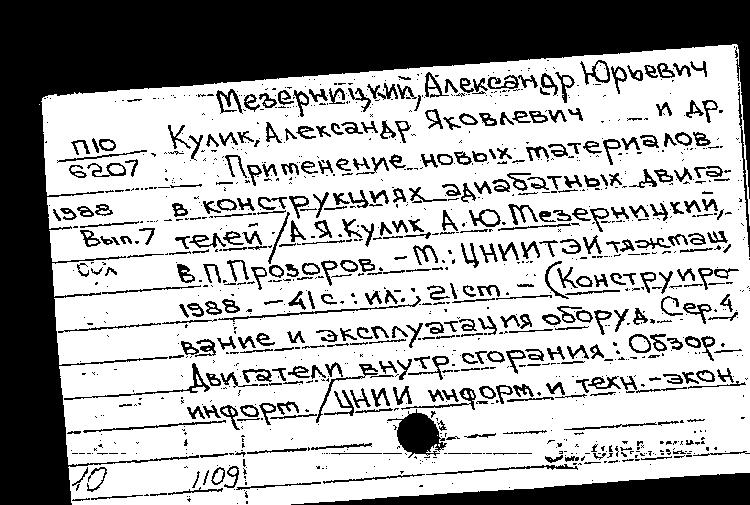 Мезерницкий, Александр Юрьевич
П10 Кулик, Александр Яковлевич и др.
6207 Применение новых материалов
1988 в конструкциях адиабатных двига-
Вып.7 телей / А.Я.Кулик, А.Ю.Мезерницкий,
В.П.Прозоров. – М.: ЦНИИТЭИтяжмаш,
1988. – 41с.: ил.; 21см. – (Конструиро-
вание и эксплуатация оборуд. Сер.4,
Двигатели внутр. сгорания: Обзор.
информ. / ЦНИИ информ. и техн.-экон.
10 1109